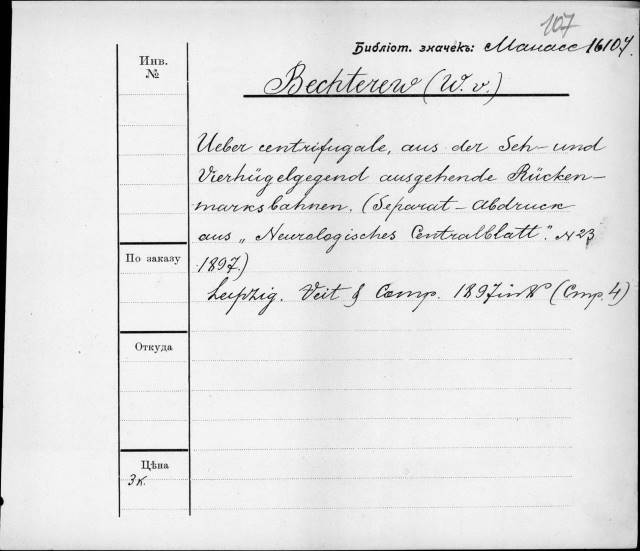 107
Библіот. значекъ: Манасс 16107.
Инв.
№
Bechterew (W. v.)
Ueber centrifugale, aus der Seh- und
Vierhügelgegend ausgehende Rücken-
marksbahnen. (Separat-Abdruck
aus „Neurologisches Centralblatt". N 23
По заказу
1897.)
Leipzig. Veit & Comp. 1897 in 8° (Стр. 4)
Откуда
Цѣна
3к.